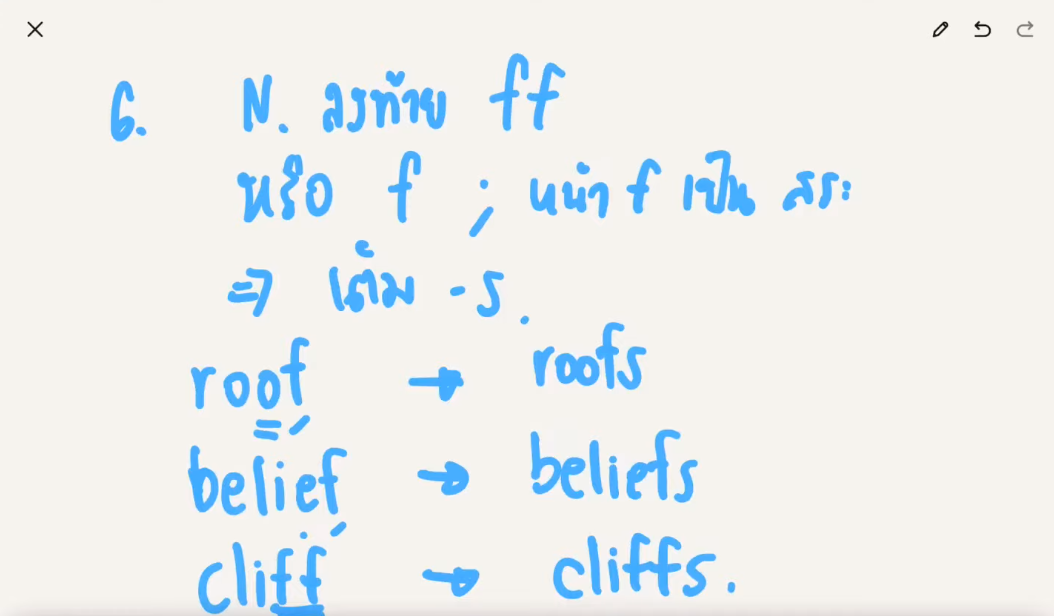 6. N. ลงท้าย ff
หรือ f ; หน้า f เป็น สระ
⇒ เติม -s.
root → roofs
belief → beliefs
cliff → cliffs.